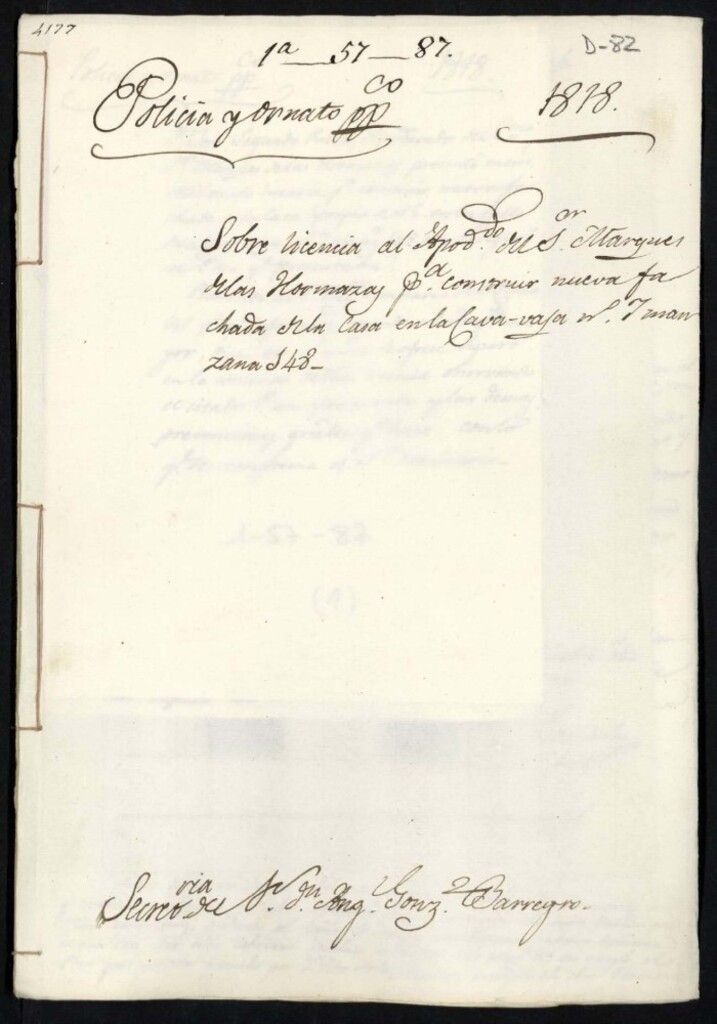 4177
D-82
1ª — 57 — 87.
Policia y Ornato ppco 1818.
Sobre licencia al Apoddo. del Sor. Marques
delas Hormazas pª. construir nueva fa
chada de la Casa en la Cava-vaja nº. 7 man
zana 148-
Secreria de Dn. Ang. Gonz. Barreyro.
1-57-87
(4)